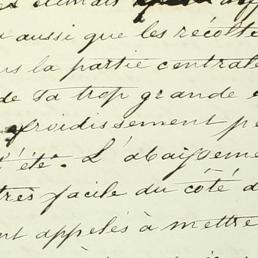 aussi que les récolte
la partie centrale
de sa trop grande
froidissement pe
l'été. L'abaisseme
très facile du côté d
nt appelés à mettre